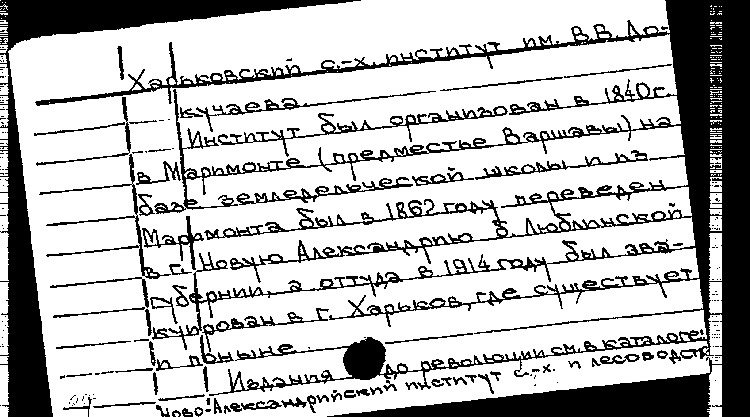 Харьковский с.-х. институт им. В.В. До-
кучаева.
Институт был организован в 1840г.
в Маримонте (предместье Варшавы) на
базе земледельческой школы и из
Маримонта был в 1862 году переведен
в г. Новую Александрию б. Люблинской
губернии, а оттуда в 1914 году был эва-
куирован в г. Харьков, где существует
и поныне.
Издания до революции см. в каталоге:
Ново-Александрийский институт с.-х. и лесоводств